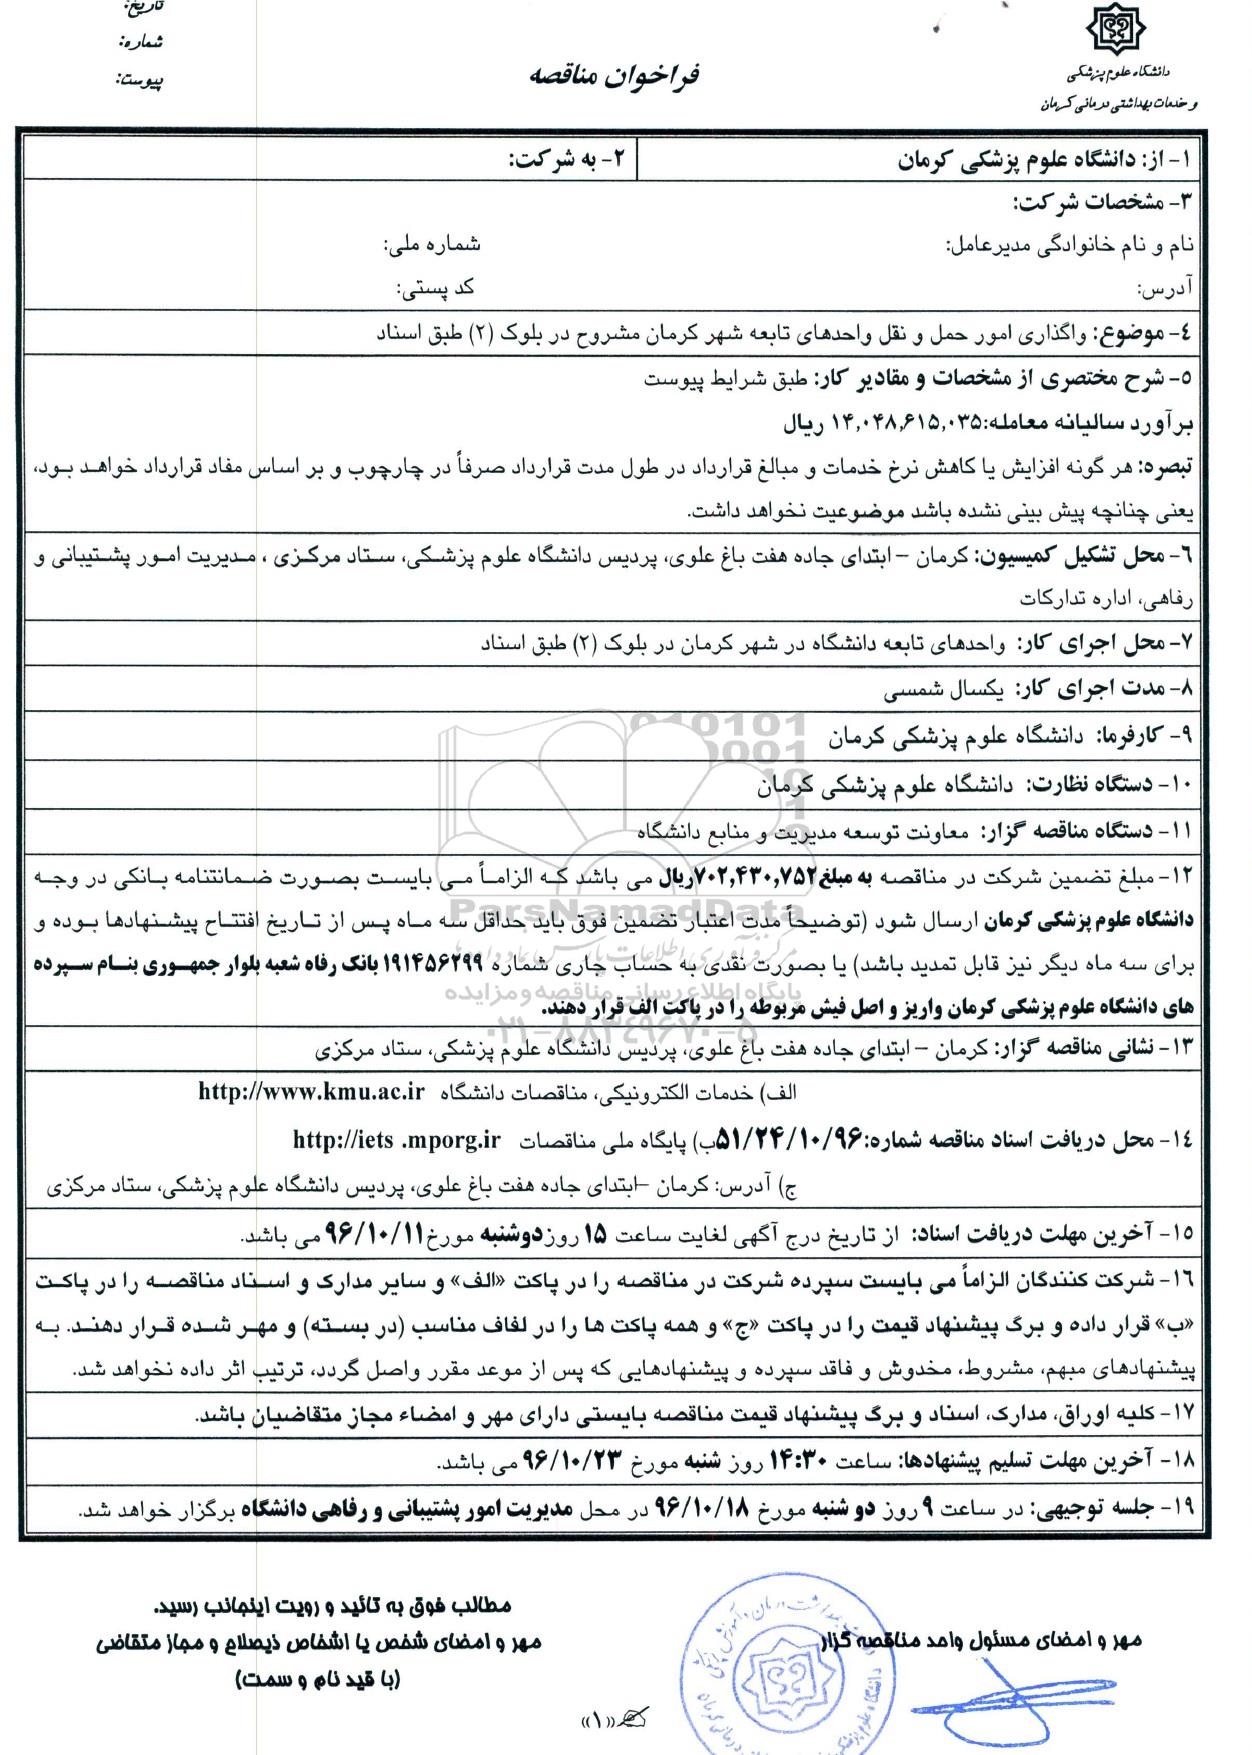 تاریخ:
شماره:
پیوست:
فراخوان مناقصه
دانشگاه علوم پزشکی
و خدمات بهداشتی درمانی کرمان
۱- از: دانشگاه علوم پزشکی کرمان
۲- به شرکت:
۳- مشخصات شرکت:
نام و نام خانوادگی مدیرعامل: شماره ملی:
آدرس: کد پستی:
۴- موضوع: واگذاری امور حمل و نقل واحدهای تابعه شهر کرمان مشروح در بلوک (۲) طبق اسناد
۵- شرح مختصری از مشخصات و مقادیر کار: طبق شرایط پیوست
برآورد سالیانه معامله:۱۴,۰۴۸,۶۱۵,۰۳۵ ریال
تبصره: هر گونه افزایش یا کاهش نرخ خدمات و مبالغ قرارداد در طول مدت قرارداد صرفاً در چارچوب و بر اساس مفاد قرارداد خواهد بود،
یعنی چنانچه پیش بینی نشده باشد موضوعیت نخواهد داشت.
۶- محل تشکیل کمیسیون: کرمان – ابتدای جاده هفت باغ علوی، پردیس دانشگاه علوم پزشکی، ستاد مرکزی ، مدیریت امور پشتیبانی و
رفاهی، اداره تدارکات
۷- محل اجرای کار: واحدهای تابعه دانشگاه در شهر کرمان در بلوک (۲) طبق اسناد
۸- مدت اجرای کار: یکسال شمسی
۹- کارفرما: دانشگاه علوم پزشکی کرمان
۱۰- دستگاه نظارت: دانشگاه علوم پزشکی کرمان
۱۱- دستگاه مناقصه گزار: معاونت توسعه مدیریت و منابع دانشگاه
۱۲- مبلغ تضمین شرکت در مناقصه به مبلغ۷۰۲,۴۳۰,۷۵۲ریال می باشد که الزاماً می بایست بصورت ضمانتنامه بانکی در وجه
دانشگاه علوم پزشکی کرمان ارسال شود (توضیحاً مدت اعتبار تضمین فوق باید حداقل سه ماه پس از تاریخ افتتاح پیشنهادها بوده و
برای سه ماه دیگر نیز قابل تمدید باشد) یا بصورت نقدی به حساب جاری شماره ۱۹۱۴۵۶۲۹۹ بانک رفاه شعبه بلوار جمهوری بنام سپرده
های دانشگاه علوم پزشکی کرمان واریز و اصل فیش مربوطه را در پاکت الف قرار دهند.
ParsNamadData
پایگاه اطلاع رسانی مناقصه و مزایده
۰۲۱-۸۸۳۴۹۶۷۰-۵
۱۳- نشانی مناقصه گزار: کرمان – ابتدای جاده هفت باغ علوی، پردیس دانشگاه علوم پزشکی، ستاد مرکزی
الف) خدمات الکترونیکی، مناقصات دانشگاه http://www.kmu.ac.ir
۱۴- محل دریافت اسناد مناقصه شماره:۵۱/۲۴/۱۰/۹۶ب) پایگاه ملی مناقصات http://iets .mporg.ir
ج) آدرس: کرمان –ابتدای جاده هفت باغ علوی، پردیس دانشگاه علوم پزشکی، ستاد مرکزی
۱۵- آخرین مهلت دریافت اسناد: از تاریخ درج آگهی لغایت ساعت ۱۵ روزدوشنبه مورخ۹۶/۱۰/۱۱ می باشد.
۱۶- شرکت کنندگان الزاماً می بایست سپرده شرکت در مناقصه را در پاکت «الف» و سایر مدارک و اسناد مناقصه را در پاکت
«ب» قرار داده و برگ پیشنهاد قیمت را در پاکت «ج» و همه پاکت ها را در لفاف مناسب (در بسته) و مهر شده قرار دهند. به
پیشنهادهای مبهم، مشروط، مخدوش و فاقد سپرده و پیشنهادهایی که پس از موعد مقرر واصل گردد، ترتیب اثر داده نخواهد شد.
۱۷- کلیه اوراق، مدارک، اسناد و برگ پیشنهاد قیمت مناقصه بایستی دارای مهر و امضاء مجاز متقاضیان باشد.
۱۸- آخرین مهلت تسلیم پیشنهادها: ساعت ۱۴:۳۰ روز شنبه مورخ ۹۶/۱۰/۲۳ می باشد.
۱۹- جلسه توجیهی: در ساعت ۹ روز دو شنبه مورخ ۹۶/۱۰/۱۸ در محل مدیریت امور پشتیبانی و رفاهی دانشگاه برگزار خواهد شد.
مهر و امضای مسئول واحد مناقصه گزار
مطالب فوق به تائید و رویت اینجانب رسید.
مهر و امضای شخص یا اشخاص ذیصلاح و مجاز متقاضی
(با قید نام و سمت)
«۱»